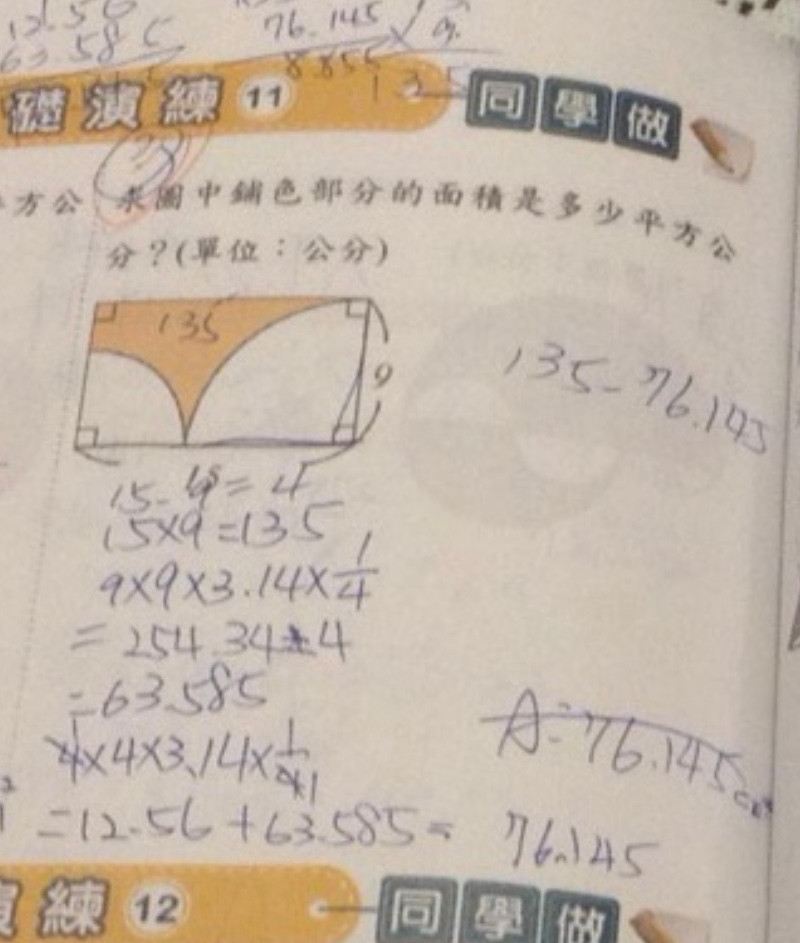 63.585
76.145
8.855
135
礎演練 11 同學做
方公
求圖中鋪色部分的面積是多少平方公
分?(單位:公分)
135
9
135-76.145
15-9=4
15×9=135
9×9×3.14×1/4
=254.34÷4
=63.585
4×4×3.14×1/4
A:76.145
=12.56+63.585= 76.145
演練 12 同學做